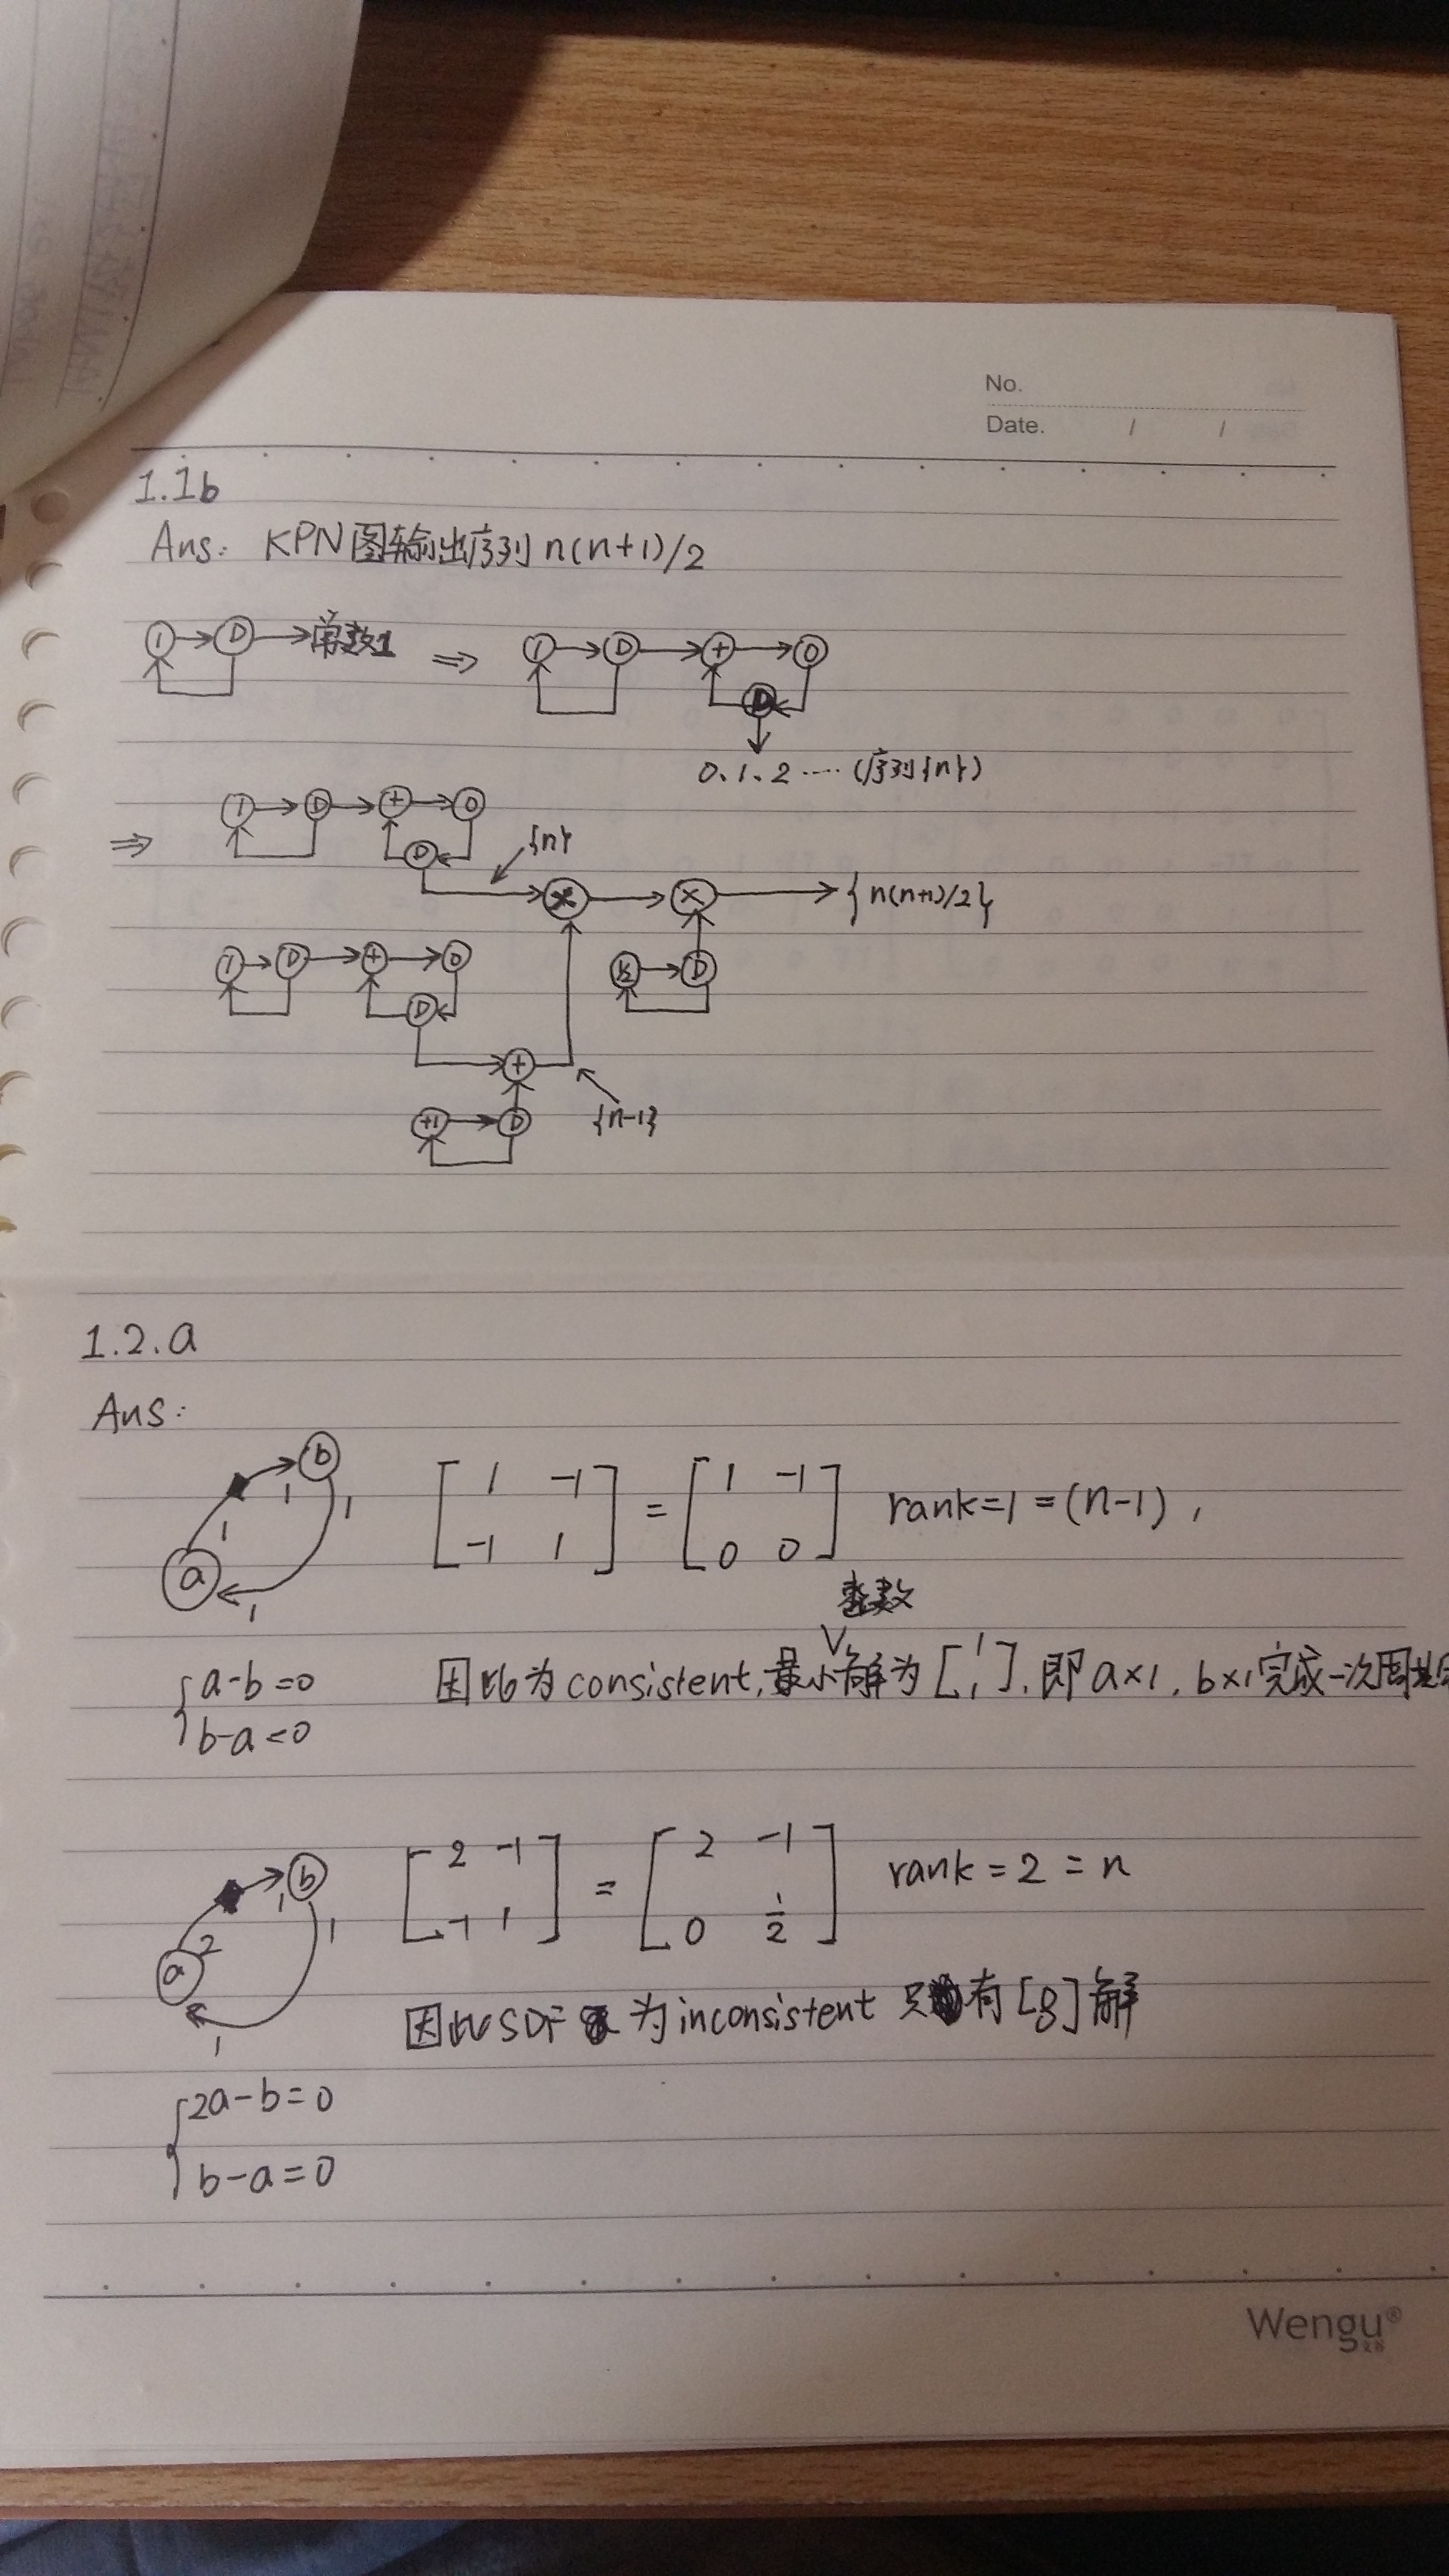 No.
Date. / /
1.1b
Ans: KPN图输出序列 n(n+1)/2
1 D 常数1 ⇒ 1 D + 0
D
0.1.2 ···· (序列{n})
⇒ 1 D + 0
D {n}
× × {n(n+1)/2}
1 D + 0 ½ D
D
+
+1 D {n-1}
1.2.a
Ans:
b [1 -1 = [1 -1 rank=1=(n-1),
1 1
1 -1 1] 0 0]
a
1 整数
{a-b=0 因此为consistent,最小解为[1 1].即a×1,b×1完成一次周期
b-a=0
b [2 -1 = [2 -1 rank=2=n
1 1
2 -1 1] 0 1/2]
a
因此SDF为inconsistent 只有[0 0]解
1
{2a-b=0
b-a=0
Wengu®